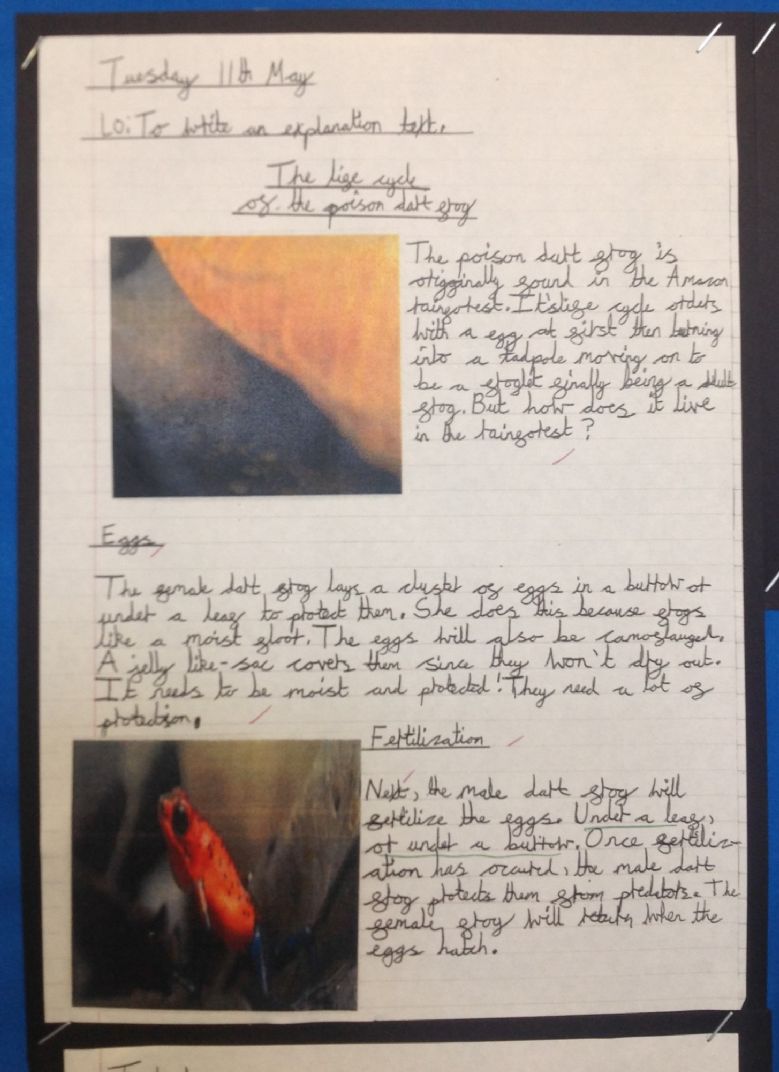 Tuesday 11th May
LO: To write an explanation text.
The life cycle
of the poison dart frog
The poison dart frog is
origginally found in the Amazon
rainforest. It's life cycle orders
with a egg at first then turning
into a tadpole moving on to
be a froglet finally being a adult
frog. But how does it live
in the rainforest?
Eggs
The female dart frog lays a cluster of eggs in a burrow or
under a leaf to protect them. She does this because frogs
like a moist floor. The eggs will also be camoflauged.
A jelly like-sac covers them since they won't dry out.
It needs to be moist and protected! They need a lot of
protection.
Fertilization
Next, the male dart frog will
fertilize the eggs. Under a leaf,
or under a burrow. Once fertiliz-
ation has occured, the male dart
frog protects them from predators. The
female frog will return when the
eggs hatch.